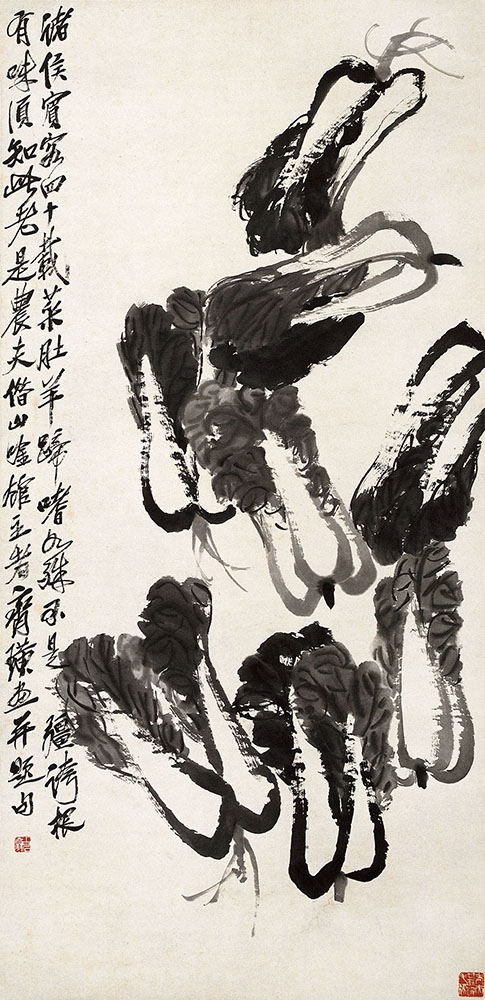 諸侯賓客四十載菜肚羊蹄嗜各殊不是彊誇根
有味須知此老是農夫借山唫館主者齊璜画并題句